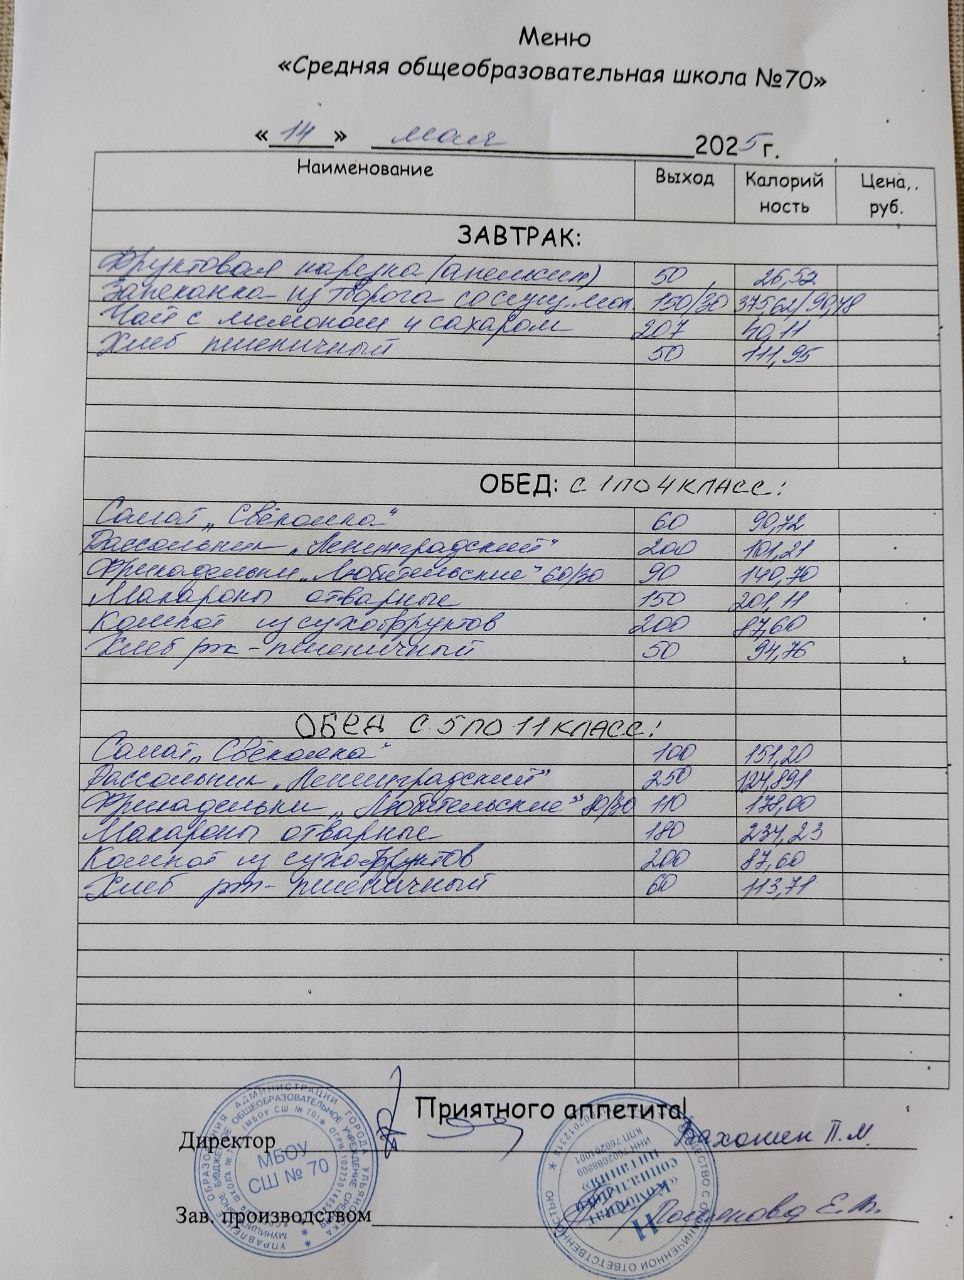 Меню
«Средняя общеобразовательная школа №70»
«14» мая 2025 г.
Наименование Выход Калорийность Цена, руб.
ЗАВТРАК:
Фруктовая нарезка (апельсин) 50 26,52
Запеканка из творога со сгущ. мол. 150/30 375,62/90,48
Чай с лимоном и сахаром 207 40,11
Хлеб пшеничный 50 111,95
ОБЕД: С 1 ПО 4 КЛАСС:
Салат „Свёколка“ 60 90,72
Рассольник „Ленинградский“ 200 101,21
Фрикадельки „Любительские“ 60/30 90 140,70
Макароны отварные 150 201,11
Компот из сухофруктов 200 87,60
Хлеб рж-пшеничный 50 94,76
ОБЕД С 5 ПО 11 КЛАСС:
Салат „Свёколка“ 100 151,20
Рассольник „Ленинградский“ 250 124,891
Фрикадельки „Любительские“ 80/30 110 178,00
Макароны отварные 180 234,23
Компот из сухофруктов 200 87,60
Хлеб рж-пшеничный 60 113,71
Приятного аппетита!
Директор П.М.
Зав. производством Е.В.
МБОУ
СШ № 70